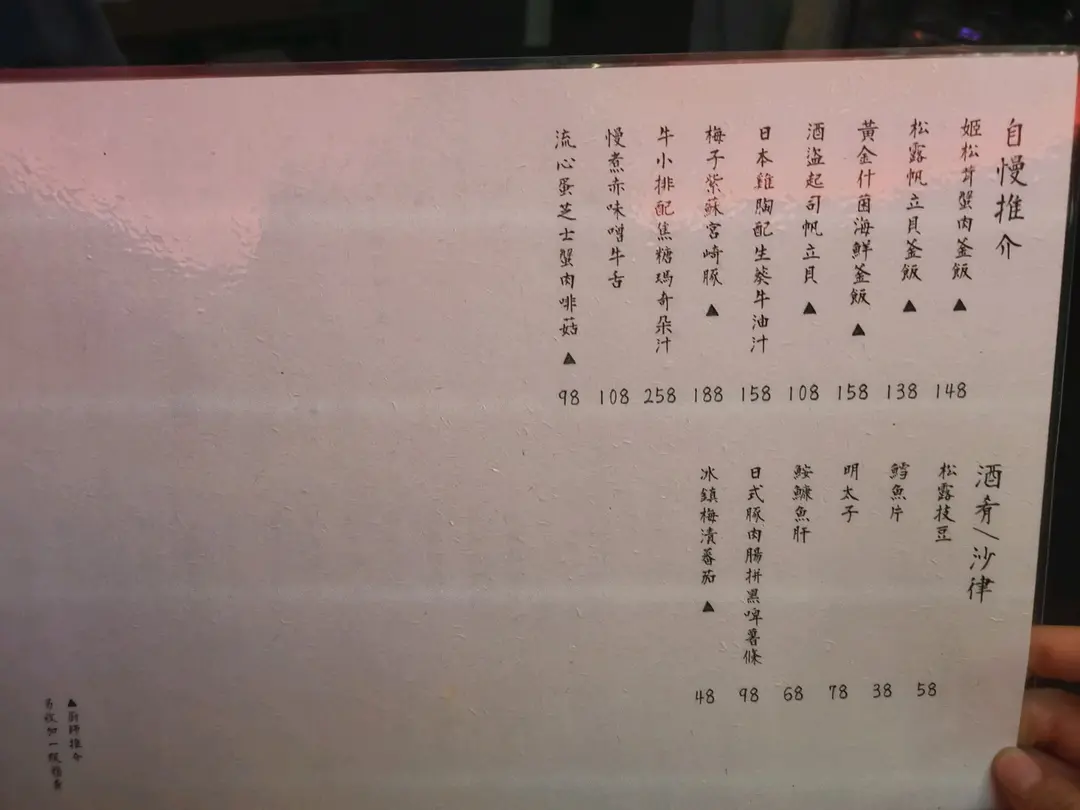 自慢推介
姬松茸蟹肉釜飯▲ 148
松露帆立貝釜飯▲ 138
黃金什菌海鮮釜飯▲ 158
酒盜起司帆立貝▲ 108
日本雞胸配生葵牛油汁 158
梅子紫蘇宮崎豚▲ 188
牛小排配焦糖瑪奇朵汁 258
慢煮赤味噌牛舌 108
流心蛋芝士蟹肉啡菇▲ 98
酒肴/沙律
松露枝豆 58
鱈魚片 38
明太子 78
鮟鱇魚肝 68
日式豚肉腸拼黑啤薯條 98
冰鎮梅漬蕃茄▲ 48
▲廚師推介
另收加一服務費